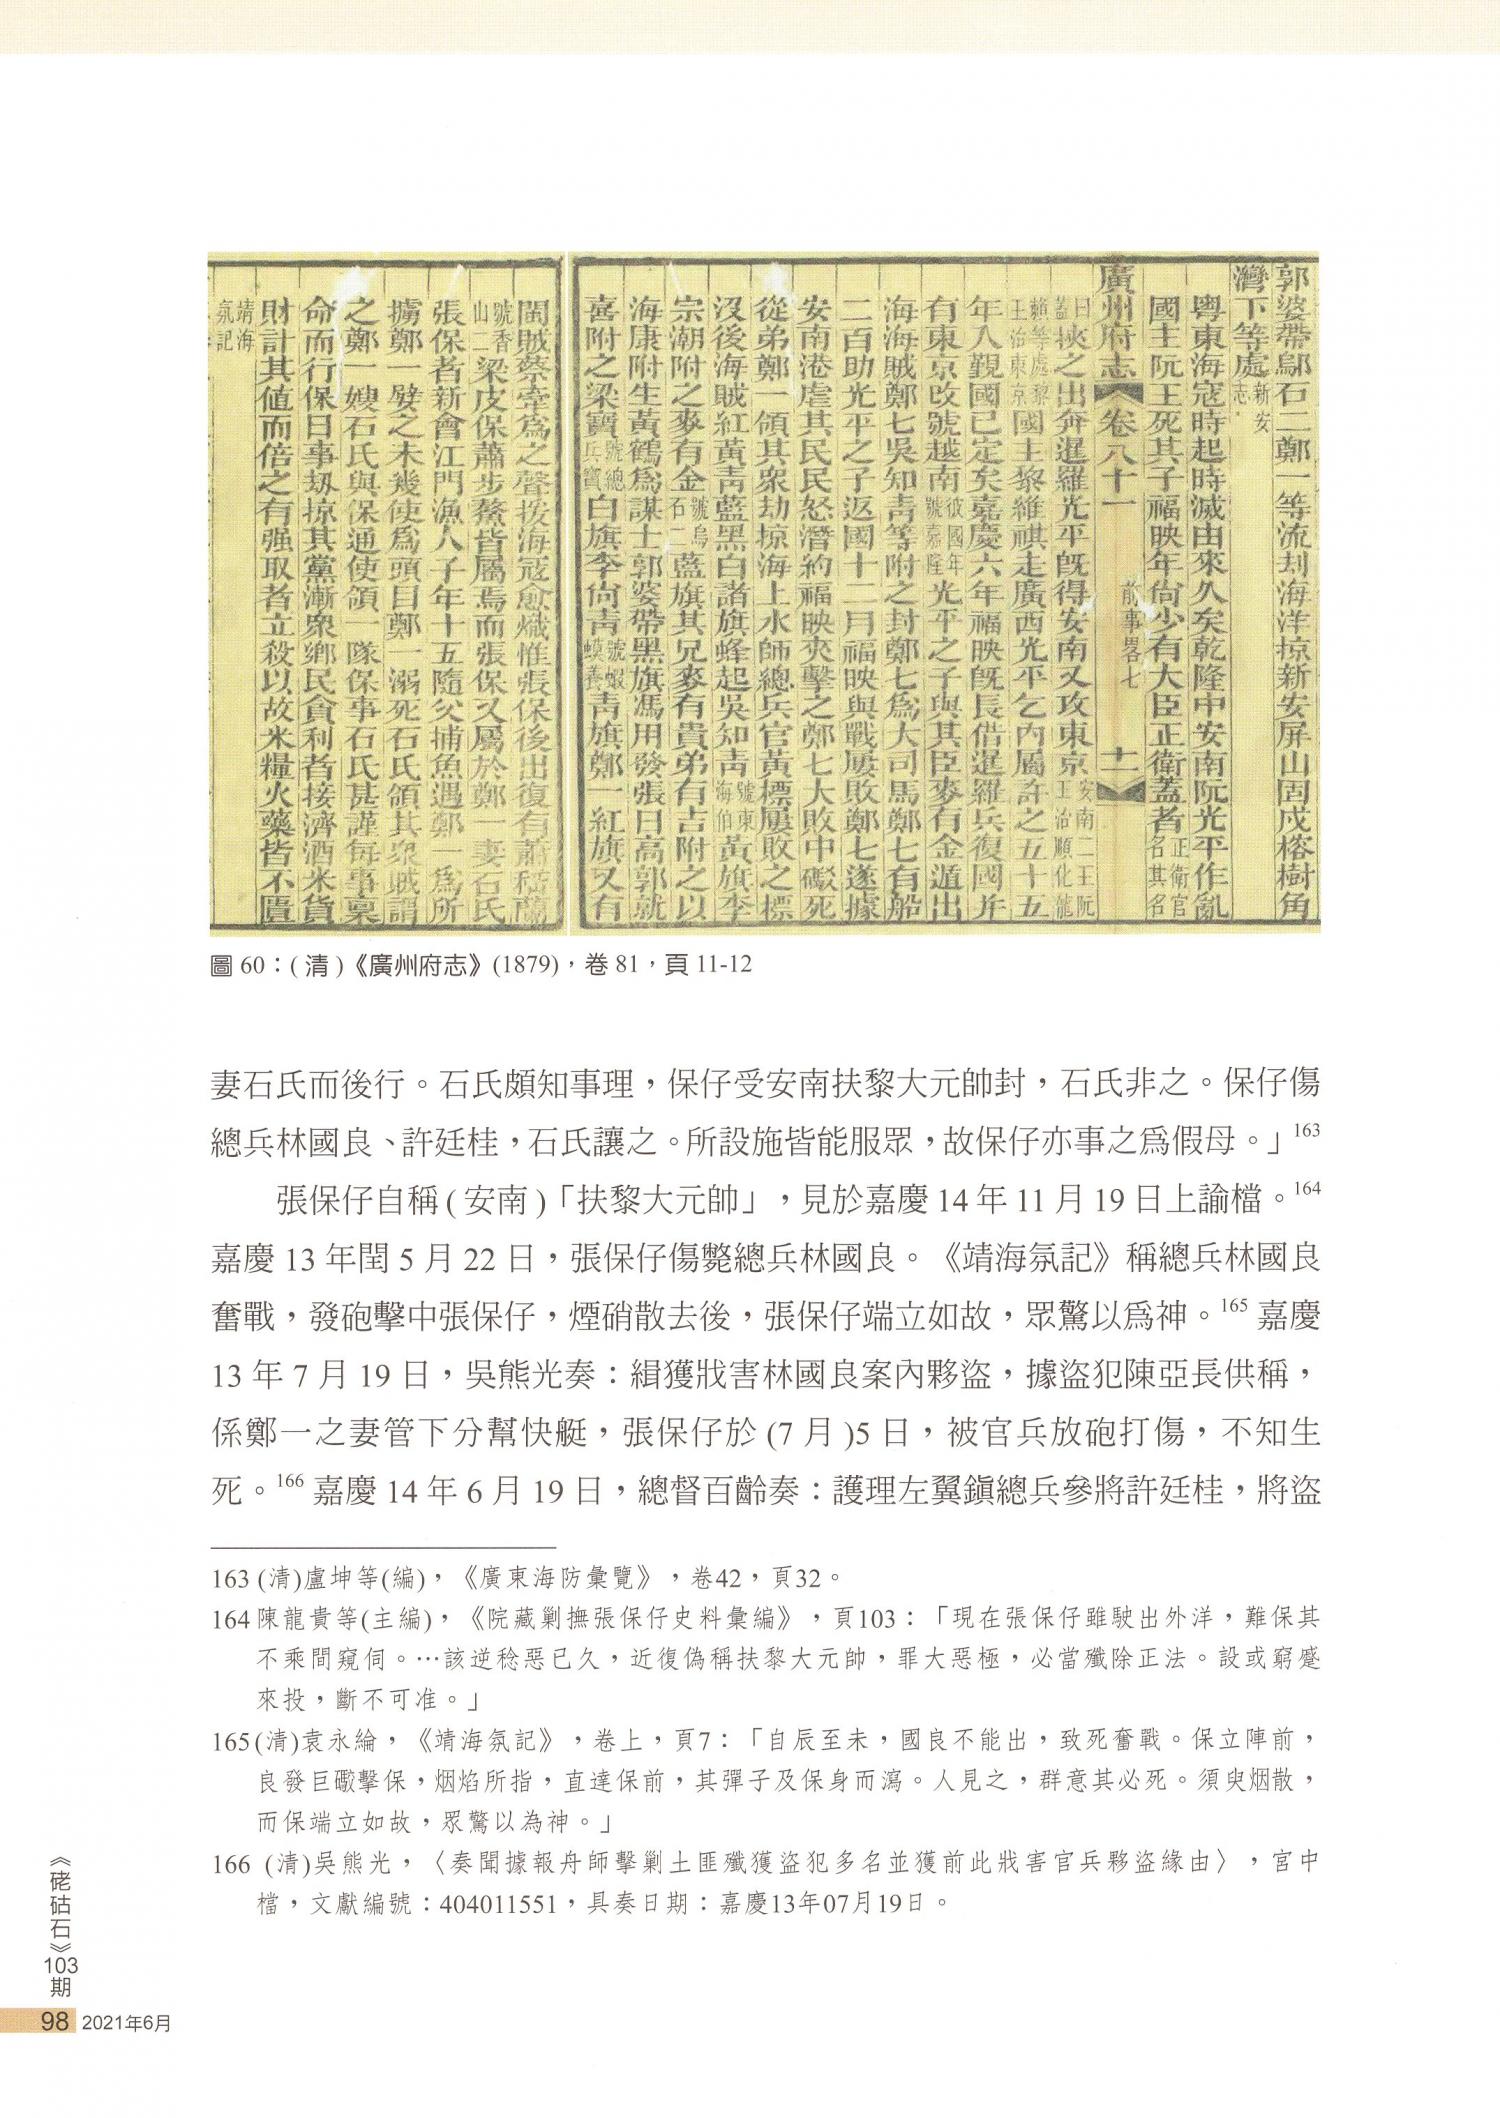 郭婆帶鄔石二鄭一等流刦海洋掠新安屏山固戍榕樹角
灣下等處新安志
粵東海寇時起時滅由來久矣乾隆中安南阮光平作亂
國王阮王死其子福映年尙少有大臣正衛蓋者正衛官名其名
廣州府志 卷八十一 前事畧七 十一
曰蓋挾之出奔暹羅光平旣得安南又攻東京安南二王阮王治順化龍
賴等處黎王治東京國主黎維祺走廣西光平乞內屬許之五十五
年入覲國已定矣嘉慶六年福映旣長借暹羅兵復國幷
有東京改號越南彼國年號嘉隆光平之子與其臣麥有金遁出
海海賊鄭七吳知靑等附之封鄭七爲大司馬鄭七有船
二百助光平之子返國十二月福映與戰屢敗鄭七遂據
安南港虐其民民怒潛約福映夾擊之鄭七大敗中礮死
從弟鄭一領其衆劫掠海上水師總兵官黃標屢敗之標
沒後海賊紅黃靑藍黑白諸旗蜂起吳知靑號東海伯黃旗李
宗潮附之麥有金號烏石二藍旗其兄麥有貴弟有吉附之以
海康附生黃鶴爲謀士郭婆帶黑旗馮用發張日高郭就
喜附之梁寶號總兵寶白旗李尙靑號蝦蟆養靑旗鄭一紅旗又有
閩賊蔡牽爲之聲援海寇愈熾惟張保後出復有蕭嵇蘭
號香山二梁皮保蕭步鰲皆屬焉而張保又屬於鄭一妻石氏
張保者新會江門漁人子年十五隨父捕魚遇鄭一爲所
擄鄭一嬖之未幾使爲頭目鄭一溺死石氏領其衆賊謂
之鄭一嫂石氏與保通使領一隊保事石氏甚謹每事稟
命而行保日事刼掠其黨漸衆鄉民貪利者接濟酒米貨
財計其値而倍之有强取者立殺以故米糧火藥皆不匱
靖海氛記
圖 60：( 清 )《廣州府志》(1879)，卷 81，頁 11-12
妻石氏而後行。石氏頗知事理，保仔受安南扶黎大元帥封，石氏非之。保仔傷
總兵林國良、許廷桂，石氏讓之。所設施皆能服眾，故保仔亦事之為假母。」163
張保仔自稱 ( 安南 )「扶黎大元帥」，見於嘉慶 14 年 11 月 19 日上諭檔。164
嘉慶 13 年閏 5 月 22 日，張保仔傷斃總兵林國良。《靖海氛記》稱總兵林國良
奮戰，發砲擊中張保仔，煙硝散去後，張保仔端立如故，眾驚以為神。165 嘉慶
13 年 7 月 19 日，吳熊光奏：緝獲戕害林國良案內夥盜，據盜犯陳亞長供稱，
係鄭一之妻管下分幫快艇，張保仔於 (7 月 )5 日，被官兵放砲打傷，不知生
死。166 嘉慶 14 年 6 月 19 日，總督百齡奏：護理左翼鎮總兵參將許廷桂，將盜
163 (清)盧坤等(編)，《廣東海防彙覽》，卷42，頁32。
164 陳龍貴等(主編)，《院藏剿撫張保仔史料彙編》，頁103：「現在張保仔雖駛出外洋，難保其
不乘間窺伺。…該逆稔惡已久，近復偽稱扶黎大元帥，罪大惡極，必當殲除正法。設或窮蹙
來投，斷不可准。」
165 (清)袁永綸，《靖海氛記》，卷上，頁7：「自辰至未，國良不能出，致死奮戰。保立陣前，
良發巨礮擊保，烟焰所指，直達保前，其彈子及保身而瀉。人見之，群意其必死。須臾烟散，
而保端立如故，眾驚以為神。」
166 (清)吳熊光，〈奏聞據報舟師擊剿土匪殲獲盜犯多名並獲前此戕害官兵夥盜緣由〉，宮中
檔，文獻編號：404011551，具奏日期：嘉慶13年07月19日。
《硓𥑮石》103期
98 2021年6月